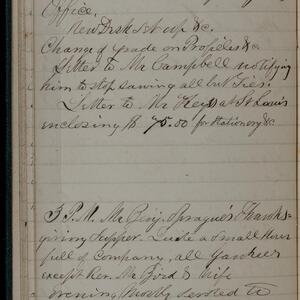 Office.
New Desk &c.
Change of Grade on Profiles &c
Letter to Mr Campbell notifying
him to stop sawing all but Ties.
Letter to Mr Heyss at St Louis
enclosing $ 75.00 for Stationery &c
3 P.M. Mr Benj. Sprague's Thanks-
giving Supper. Quite a small House
full of Company, all Yankees
except Rev. Mr Ford & Wife
evening mostly devoted to